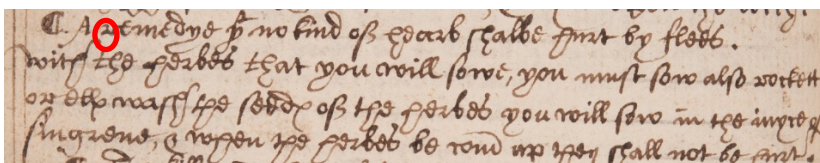 C. A remedye yt no kind of hearb shalbe hurt by flees.
with the herbes that you will sowe, you must sow also rockett
or els wash the sedds of the herbes you will sow in the iuyce of
singrene, & when the herbes be com up they shall not be hurt.